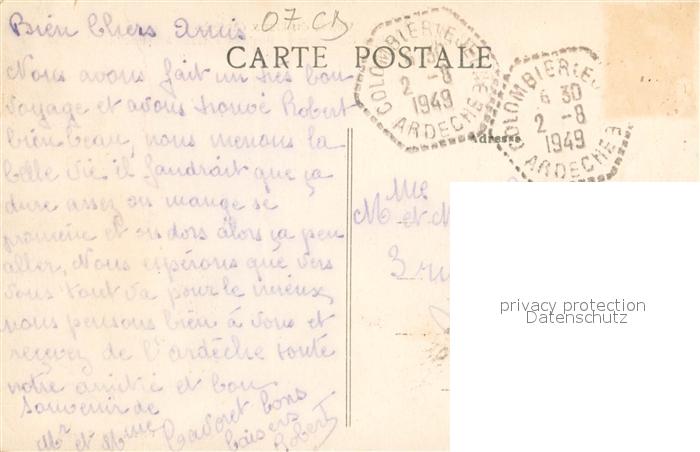 07 CB
Bien Chers Amis
CARTE POSTALE
Nous avons fait un tres bon
voyage et avons trouvé Robert
bien beau, nous menons la
belle vie il faudrait que ça
dure assez on mange se
promène et on dors alors ça peu
aller, Nous espérons que vers
vous tout va pour le mieux
nous pensons bien à vous et
reçevez de l'ardèche toute
notre amitié et bon
Souvenir de
Mr et Mme bons
baisers
Robert
COLOMBIER LE JEUNE
2 -8
1949
ARDECHE
COLOMBIER LE JEUNE
6 30
2 -8
1949
ARDECHE
Adresse
Mme
M et M
3 rue
privacy protection
Datenschutz